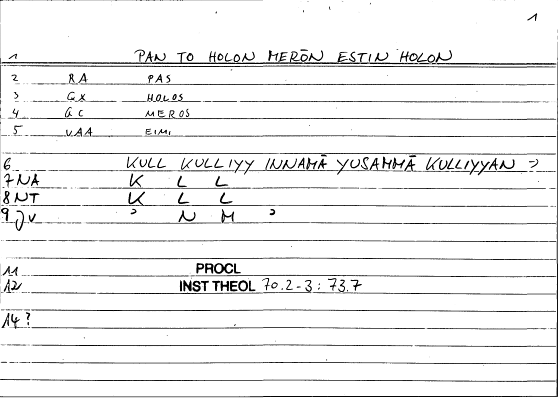 1
1 PAN TO HOLON MERŌN ESTIN HOLON
2 RA PAS
3 GX HOLOS
4 GC MEROS
5 VAA EIMI
6 KULL KULLIYY INNAMĀ YUSAMMĀ KULLIYYAN ɔ
7 NA K L L
8 NT K L L
9 JV ɔ N M ɔ
11 PROCL
12 INST THEOL 70.2-3 : 73.7
14 ?